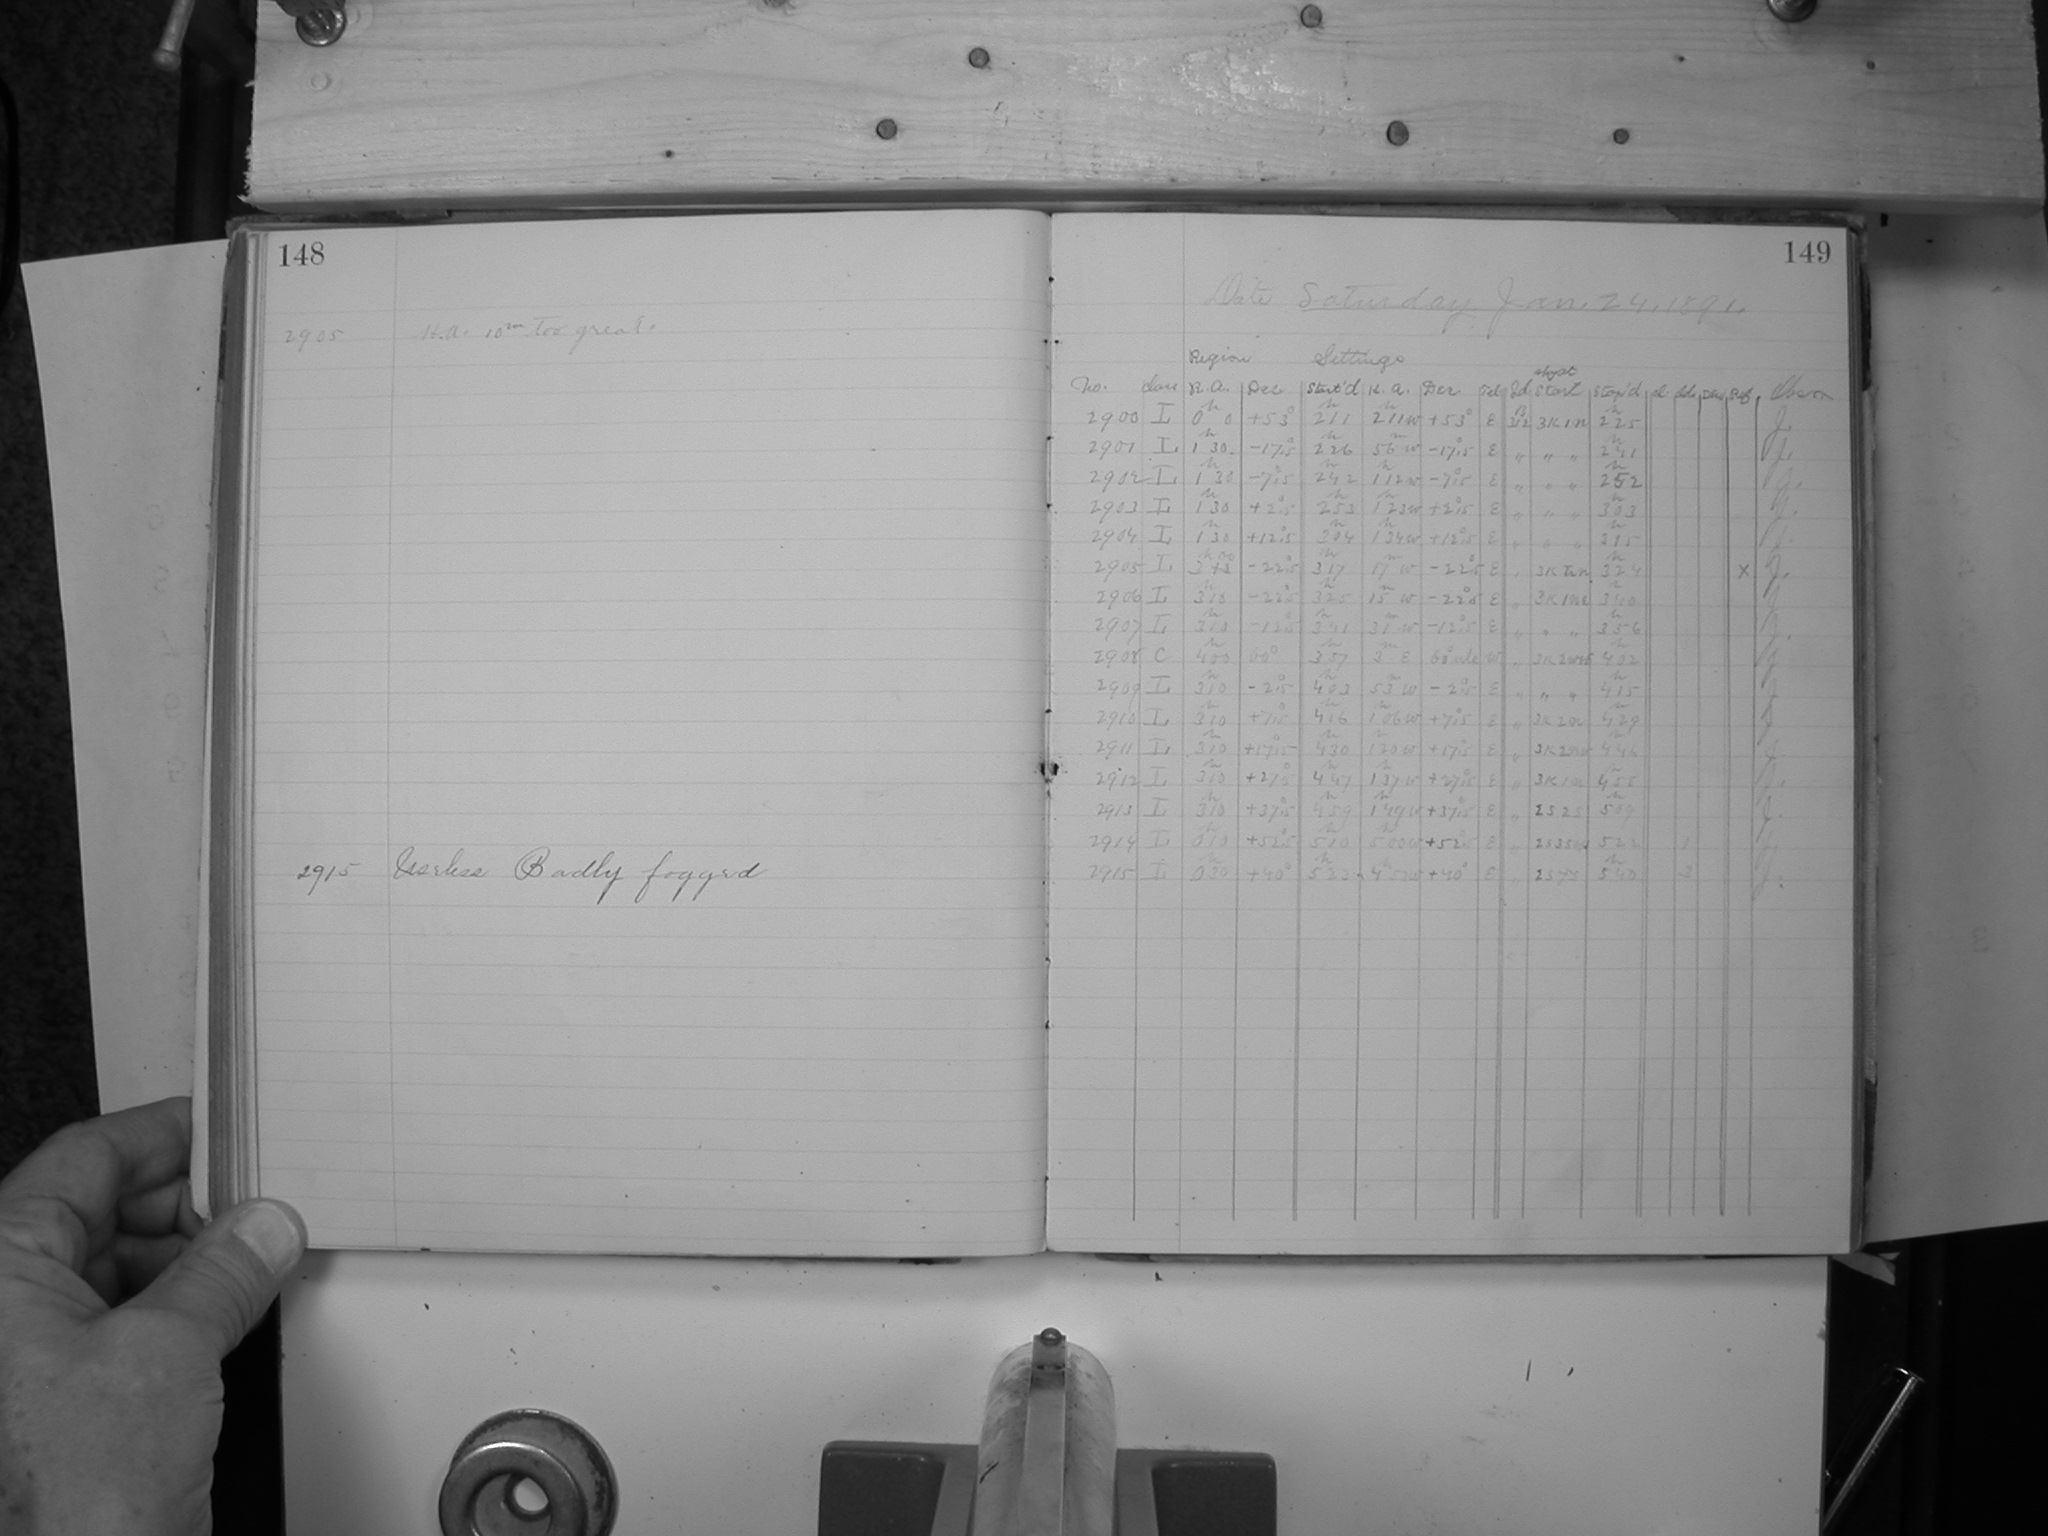 148
2905 H.A. 10m too great.
2915 Useless Badly fogged
149
Date Saturday Jan. 24, 1891.
Region Settings
No. R.A. Dec Start'd H.A. Dec Start Stop'd
2900 I 0h 0 +53° 2h11 2h11w +53° E 3K1n 2h25
2901 I 1h30 -17°.5 2h26 56mw -17°.5 E " " " 2h41
2902 I 1h30 -7°.5 2h42 1h12w -7°.5 E " " " 2h52
2903 I 1h30 +2°.5 2h53 1h23w +2°.5 E " " " 3h03
2904 I 1h30 +12°.5 3h04 1h34w +12°.5 E " " " 3h15
2905 I -22°.5 3h17 17mw -22°.5 E " 3h24 x J.
2906 I 3h10 -22°.5 3h25 15mw -22°.5 E " 3h40
2907 I 3h10 -12°.5 3h41 31mw -12°.5 E " " " 3h56
2908 C 4h00 60° 3h57 3m E W " 4h02
2909 I 3h10 -2°.5 4h03 53mw -2°.5 E " " " 4h15
2910 I 3h10 +7°.5 4h16 1h06w +7°.5 E " 4h29
2911 I 3h10 +17°.5 4h30 1h20w +17°.5 E " 4h46
2912 I 3h10 +27°.5 4h47 1h37w +27°.5 E " 3K1n 4h58
2913 I 3h10 +37°.5 4h59 1h49w +37°.5 E " 2S2S 5h09 J.
2914 I 0h10 +52°.5 5h10 5h00w +52°.5 E " 5h22 1
2915 I 0h30 +40° +40° E " 5h40 2 J.